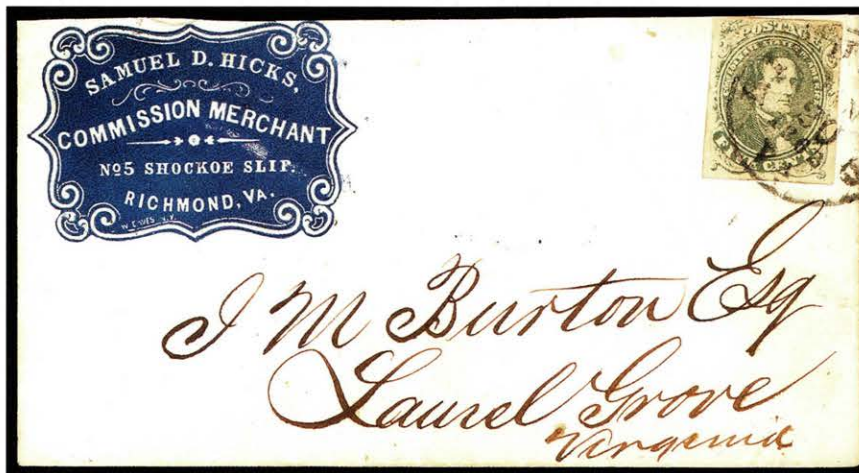 SAMUEL D. HICKS,
COMMISSION MERCHANT
Nº5 SHOCKOE SLIP.
RICHMOND, VA.
FIVE CENTS
J M Burton Esq
Laurel Grove
Virginia